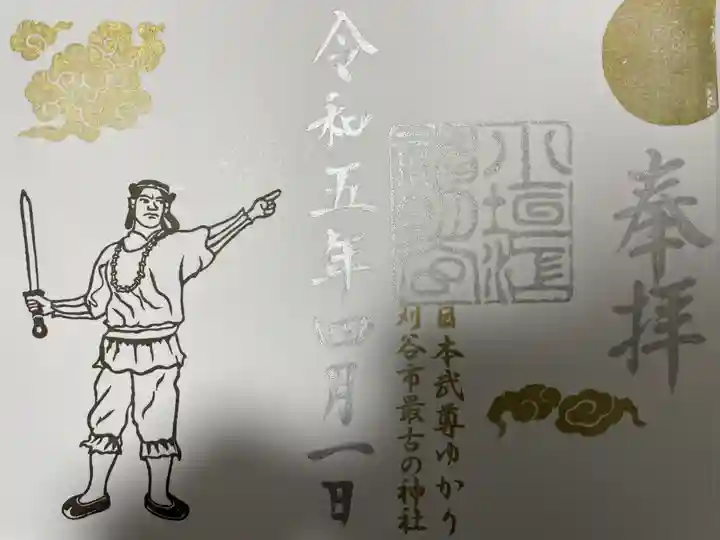 奉拝
小垣江
日本武尊ゆかり
刈谷市最古の神社
令和五年四月一日